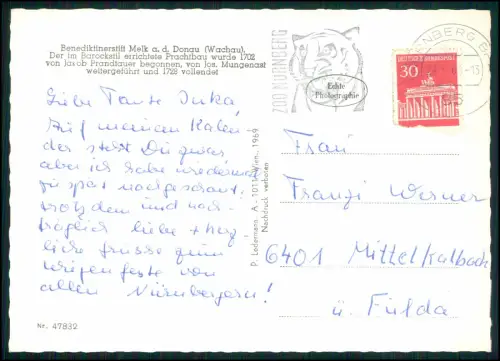 Benediktinerstift Melk a. d. Donau (Wachau).
Der im Barockstil errichtete Prachtbau wurde 1702
von Jacob Prandtauer begonnen, von Jos. Mungenast
weitergeführt und 1728 vollendet
ZOO NÜRNBERG
Echte
Photographie
30
Liebe Tante Inka,
Auf meinem Kalen-
der steht Du zwar,
aber ich habe wiedermal
zu spät nachgeschaut,
trotzdem und nach-
träglich liebe + herz-
liche Grüsse zum
Wiegenfeste von
allen Nürnbergern!
P. Ledermann, A - 1011 Wien, 1969
Nachdruck verboten
Frau
Franzi Werner
6401 Mittelkalbach
ü. Fulda
Nr. 47832